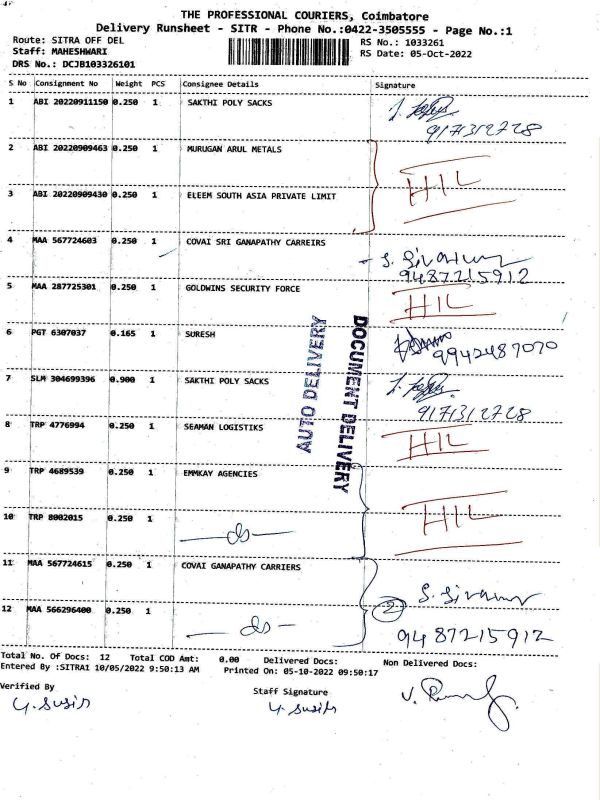 THE PROFESSIONAL COURIERS, Coimbatore
Delivery Runsheet - SITR - Phone No.:0422-3505555 - Page No.:1
Route: SITRA OFF DEL RS No.: 1033261
Staff: MAHESHWARI RS Date: 05-Oct-2022
DRS No.: DCJB103326101
S No Consignment No Weight PCS Consignee Details Signature
1 ABI 20220911150 0.250 1 SAKTHI POLY SACKS
9171312728
2 ABI 20220909463 0.250 1 MURUGAN ARUL METALS
HIL
3 ABI 20220909430 0.250 1 ELEEM SOUTH ASIA PRIVATE LIMIT
4 MAA 567724603 0.250 1 COVAI SRI GANAPATHY CARREIRS
9487215912
5 MAA 287725301 0.250 1 GOLDWINS SECURITY FORCE HIL
6 PGT 6307037 0.165 1 SURESH
9942487070
7 SLM 304699396 0.900 1 SAKTHI POLY SACKS
9171312728
8 TRP 4776994 0.250 1 SEAMAN LOGISTIKS HIL
AUTO DELIVERY
DOCUMENT DELIVERY
9 TRP 4689539 0.250 1 EMMKAY AGENCIES
HIL
10 TRP 8002015 0.250 1 ds
11 MAA 567724615 0.250 1 COVAI GANAPATHY CARRIERS
2
12 MAA 566296400 0.250 1 ds
9487215912
Total No. Of Docs: 12 Total COD Amt: 0.00 Delivered Docs: Non Delivered Docs:
Entered By :SITRA1 10/05/2022 9:50:13 AM Printed On: 05-10-2022 09:50:17
Verified By Staff Signature